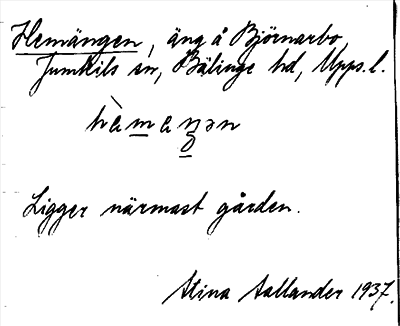 Hemängen, äng å Björnarbo
Jumkils sn, Bälinge hd, Upps. l.
Ligger närmast gården.
Stina Aallander 1937.